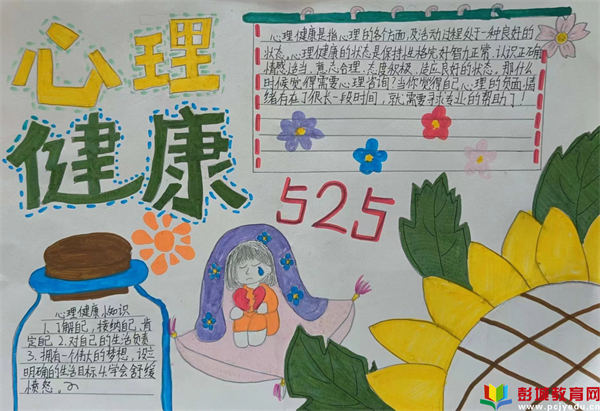 心理
健康
心理健康是指心理的各个方面及活动过程处于一种良好的
状态。心理健康的状态是保持性格完好智力正常、认识正确、
情感适当、意志合理、态度积极、适应良好的状态。那么什
么时候觉得需要心理咨询?当你觉得自己心理的负面情
绪存在了很长一段时间,就需要寻求专业的帮助了!
525
心理健康小知识
1.了解自己,接纳自己,肯
定自己 2.对自己的生活负责
3.拥有一个伟大的梦想,设立
明确的生活目标 4.学会舒缓
愤怒。
彭城教育网
www.pcjyedu.cn